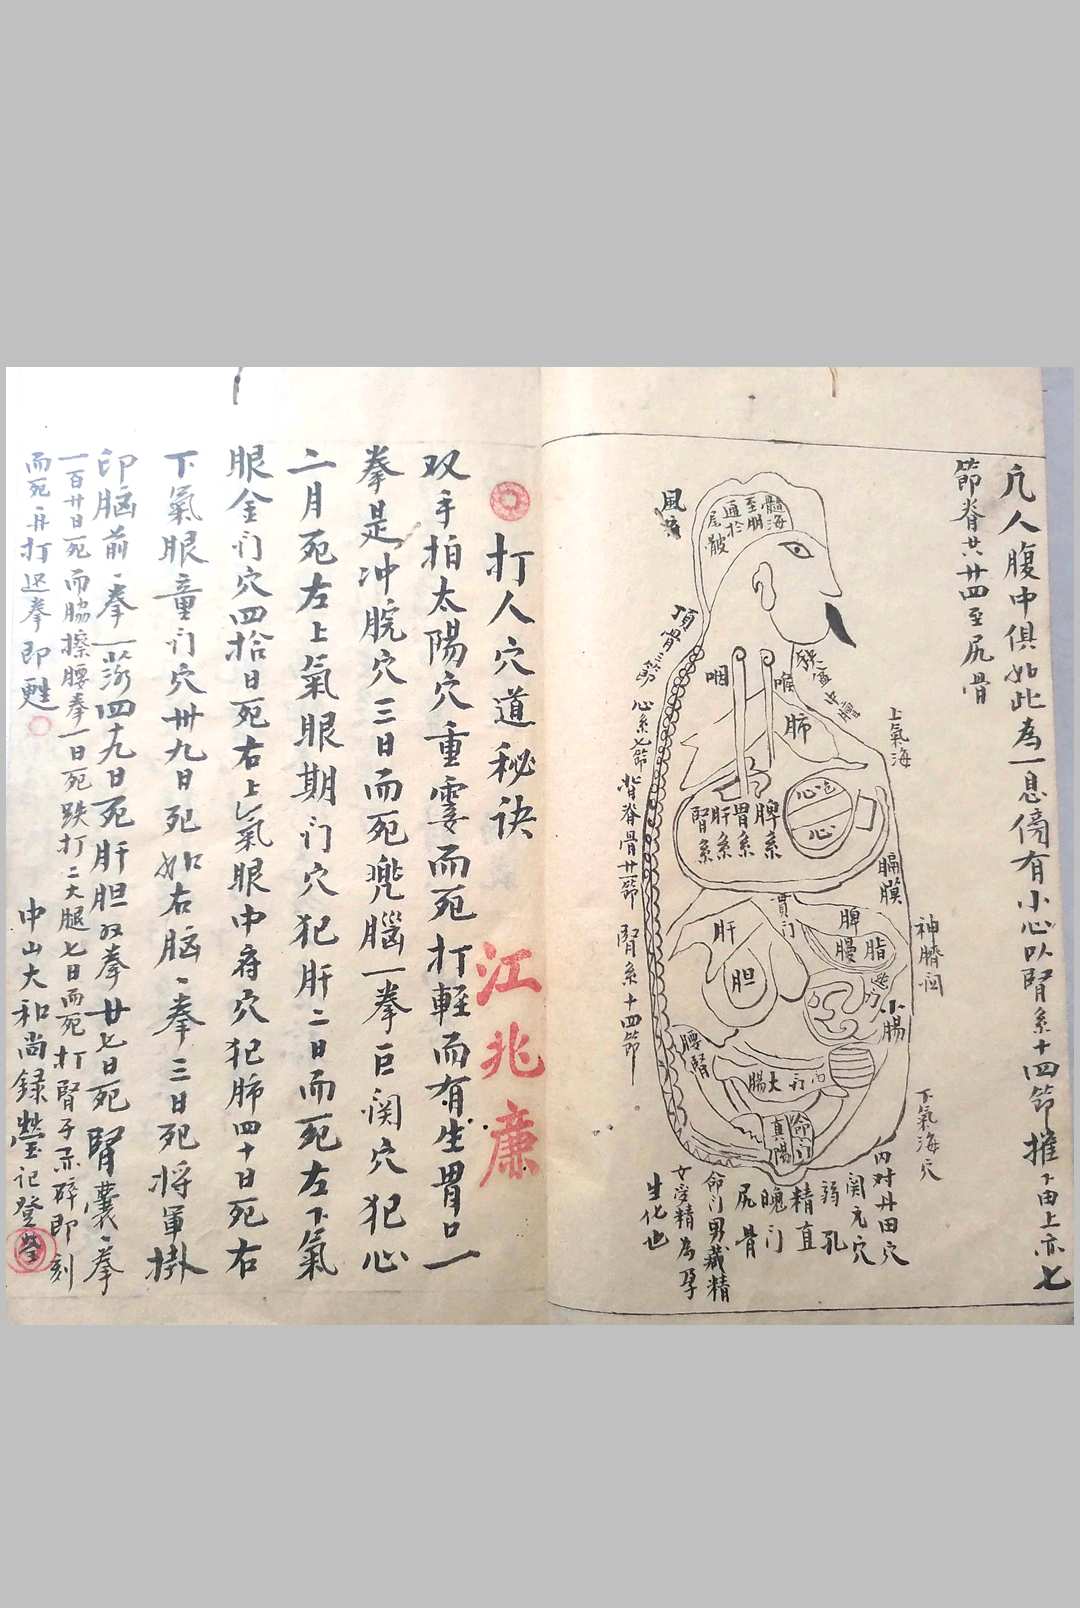 凢人腹中俱如此為一息傍有小心以腎系十四節摧下由上亦七
節脊共廿四至尻骨
髓海
至腦
通於
尾骶
風府
頂骨三節
咽
喉
缺盆
中膻
肺
心系七節
背脊骨廿一節
腎系十四節
上氣海
心包
心
脾系
胃系
肝系
腎系
膈膜
神臍
賁门
脾
脂
膜
肝
胆
小腸
腰腎
大腸
命门
真陽
下氣海穴
内对丹田穴
関元穴
溺孔
精直
魄门
尻骨
命门男藏精
女受精為孕
生化也
打人穴道秘诀
江兆廉
双手拍太陽穴重霎而死打軽而有生胃口一
拳是冲脘穴三日而死兠腦一拳巨阙穴犯心
二月死左上氣眼期门穴犯肝二日而死左下氣
眼金门穴四拾日死右上氣眼中府穴犯肺四十日死右
下氣眼童门穴卅九日死如右脑一拳三日死将軍掛
印脑前一拳一荡四十九日死肝胆双拳廿七日死腎囊一拳
一百廿日死而脇擦腰拳一日死跌打二大腿七日而死打腎子亦碎即刻
而死再打返拳即甦
中山大和尚録瑩記登